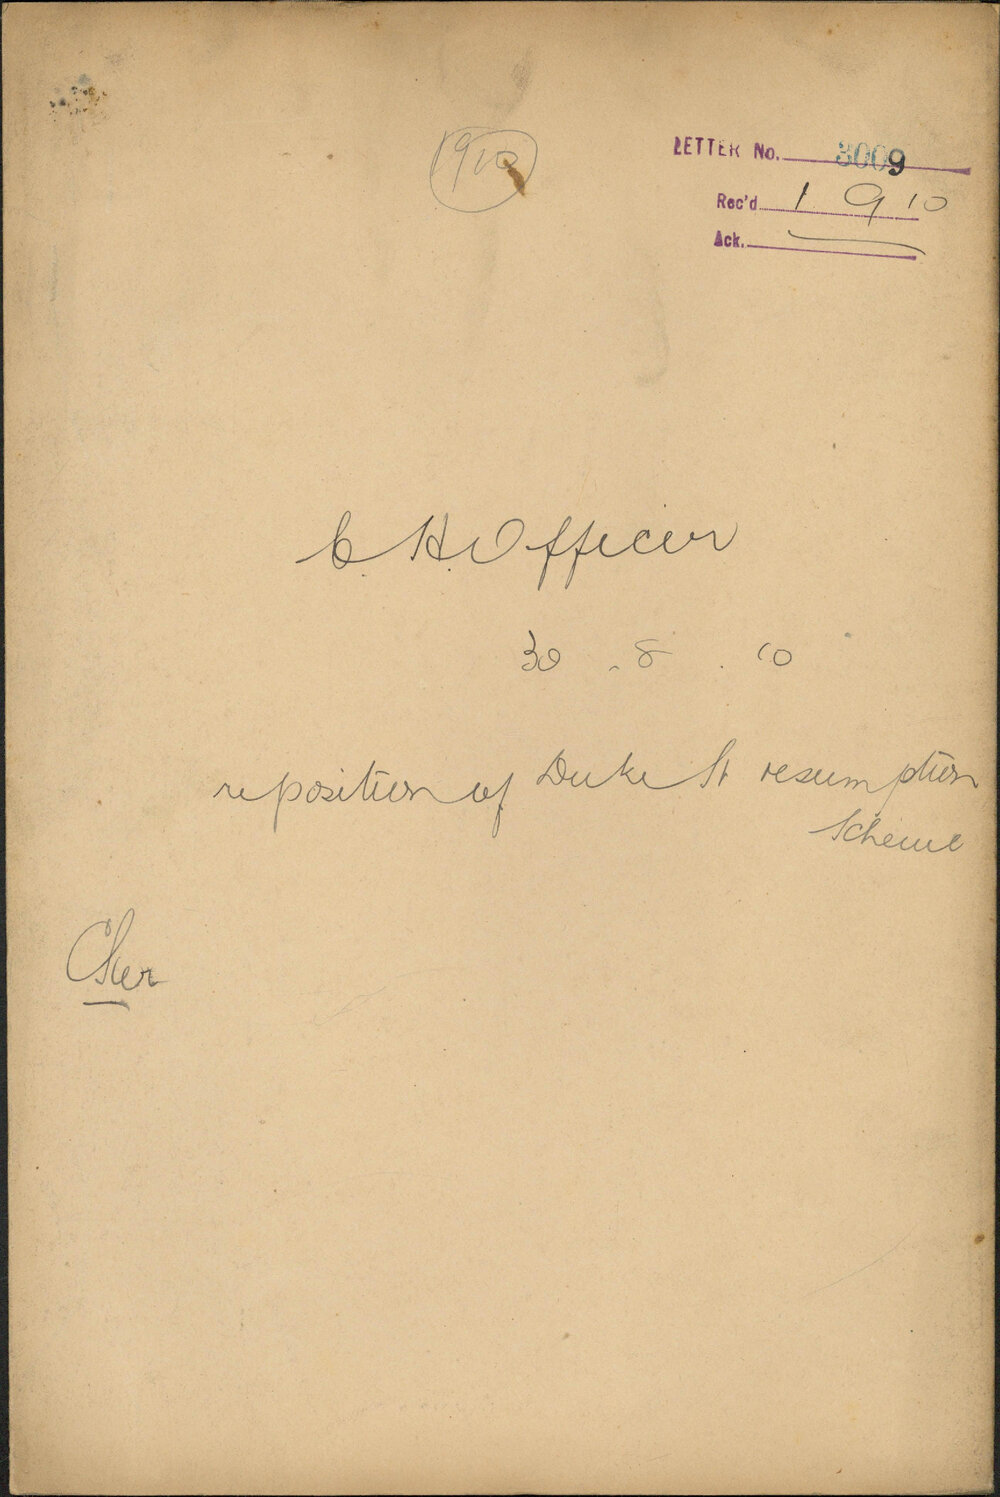 1910
LETTER No. 3009
Rec'd 1 9 10
Ack.
C. H. Officer
30 . 8 . 10
re position of Duke St resumption
Scheme